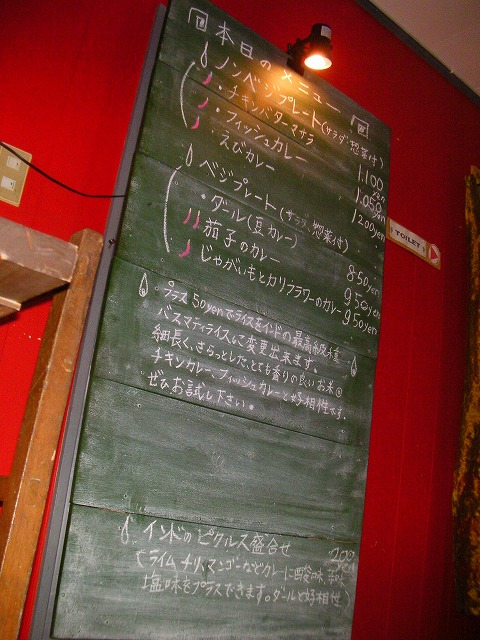 本日のメニュー
ノンベジプレート(サラダ、惣菜付)
・チキンバターマサラ 1.100yen
・フィッシュカレー 1.050yen
・えびカレー 1200yen
ベジプレート(サラダ、惣菜付)
・ダール(豆カレー) 850yen
茄子のカレー 950yen
じゃがいもとカリフラワーのカレー 950yen
プラス50yenでライスをインドの最高級種
バスマティライスに変更出来ます。
細長く、さらっとした、とても香りの良いお米。
チキンカレー、フィッシュカレーと好相性です。
ぜひ、お試し下さい。
インドのピクルス盛合せ
(ライム、チリ、マンゴーなどカレーに酸味、辛味、
塩味をプラスできます。ダールと好相性)
TOILET